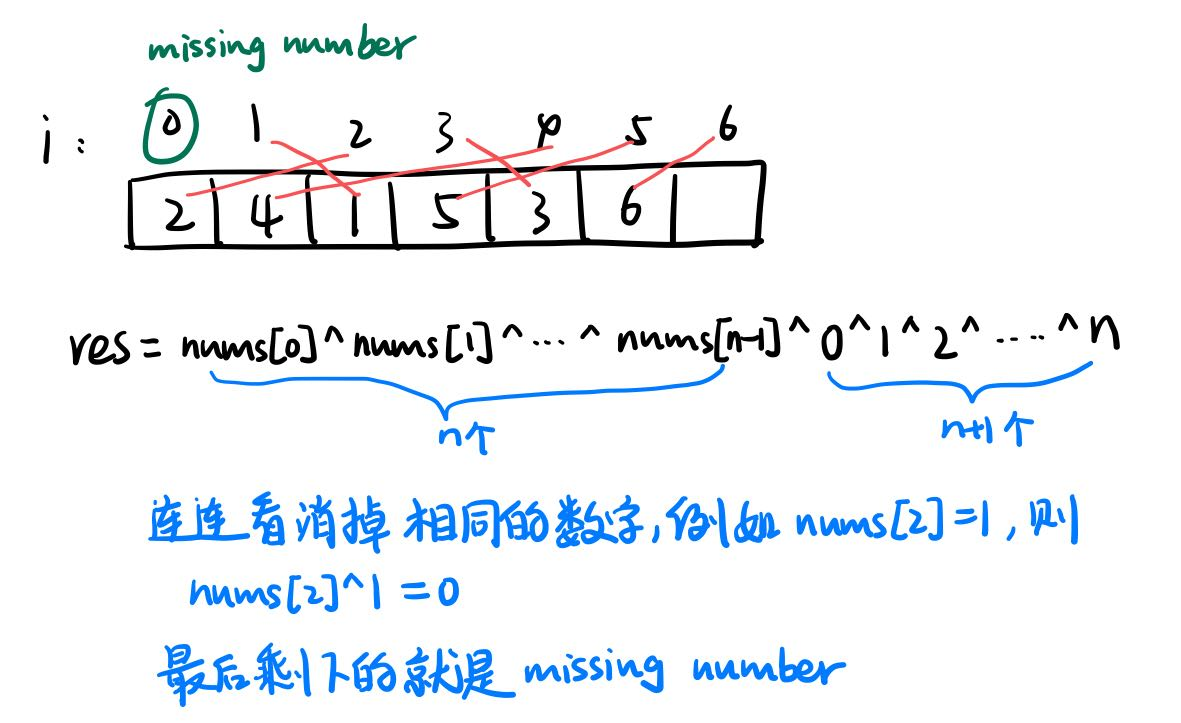 missing number
i: 0 1 2 3 4 5 6
2 4 1 5 3 6
res = nums[0]^nums[1]^...^nums[n-1]^0^1^2^.....^n
n个 n+1个
连连看消掉相同的数字,例如nums[2]=1,则
nums[2]^1=0
最后剩下的就是missing number